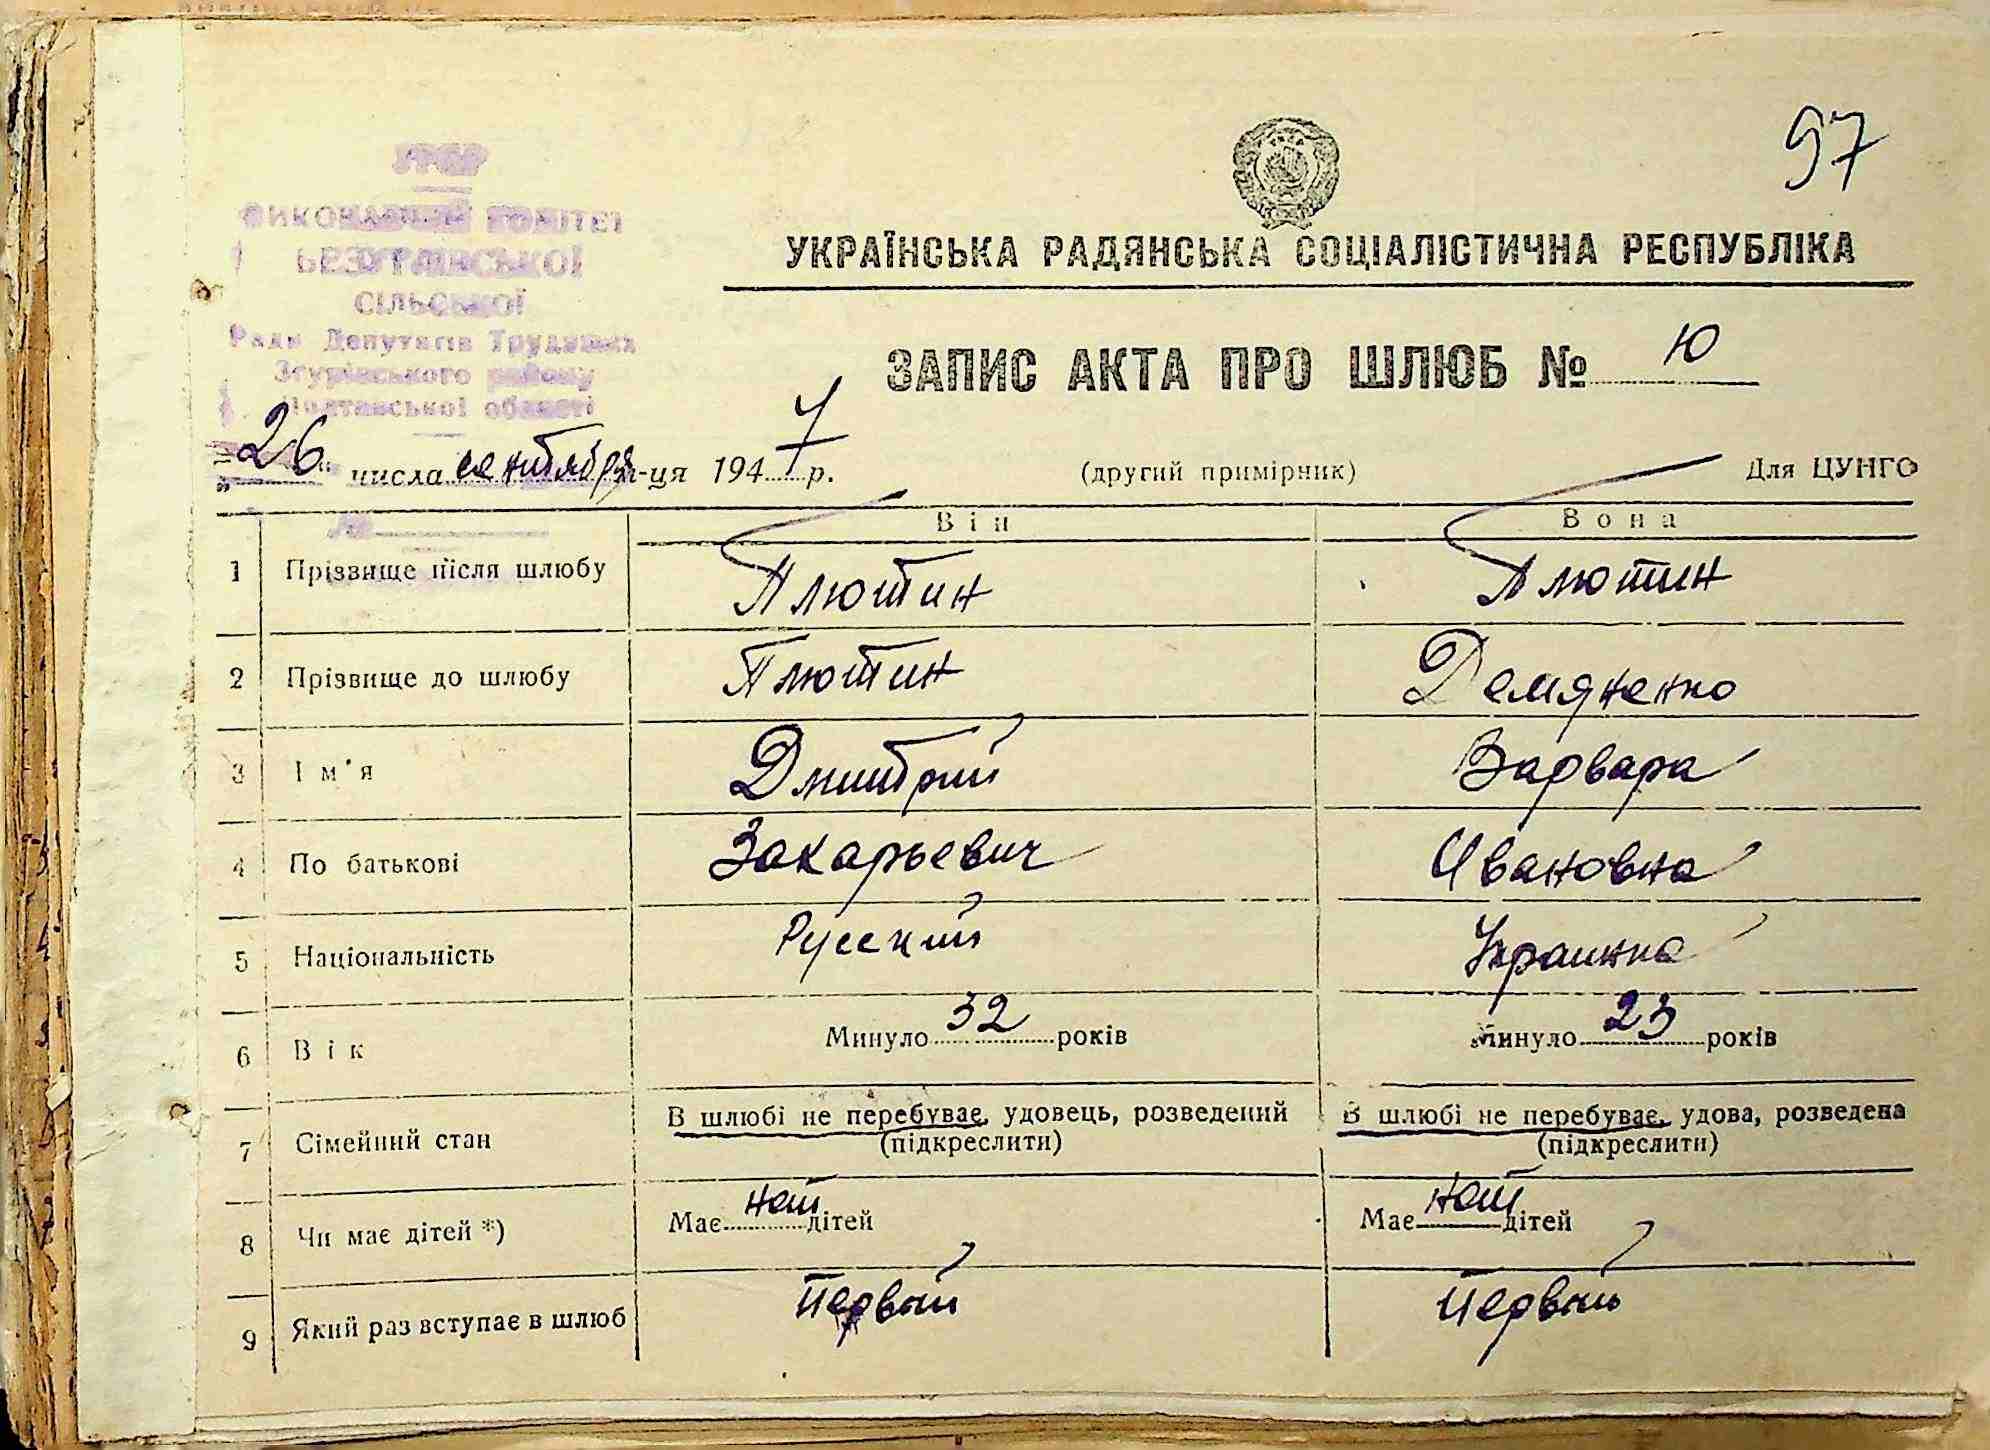 97
УКРАЇНСЬКА РАДЯНСЬКА СОЦІАЛІСТИЧНА РЕСПУБЛІКА
УРСР
ВИКОНАВЧИЙ КОМІТЕТ
СІЛЬСЬКОЇ
Ради Депутатів Трудящих
Згурівського району
Полтавської області
ЗАПИС АКТА ПРО ШЛЮБ № 10
"26" числа сентября м-ця 1947 р. (другий примірник) Для ЦУНГО
№
Він Вона
1 Прізвище після шлюбу Плютин Плютин
2 Прізвище до шлюбу Плютин Демяненко
3 Ім'я Дмитрий Варвара
4 По батькові Захарьевич Ивановна
5 Національність Русский Украинка
6 Вік Минуло 32 років Минуло 23 років
7 Сімейний стан В шлюбі не перебуває, удовець, розведений В шлюбі не перебуває, удова, розведена
(підкреслити) (підкреслити)
8 Чи має дітей *) Має нет дітей Має нет дітей
9 Який раз вступає в шлюб Первый Первый